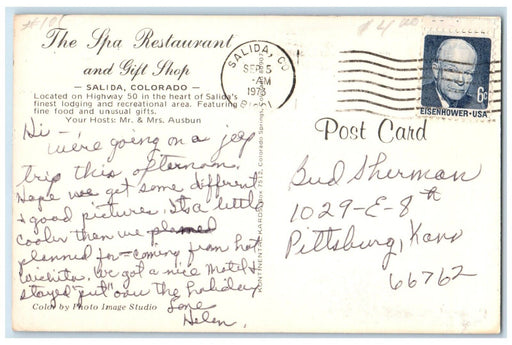 #106
$4.00
The Spa Restaurant
and Gift Shop
— SALIDA, COLORADO —
Located on Highway 50 in the heart of Salida's
finest lodging and recreational area. Featuring
fine food and unusual gifts.
Your Hosts: Mr. & Mrs. Ausbun
Hi —
We're going on a jeep
trip this afternoon.
Hope we get some different
& good pictures. It's a little
cooler then we planned
planned for — coming from hot
Wichita. We got a nice motel &
stayed "put" over the holiday
Love
Helen.
Color by Photo Image Studio
KONTINENTAL KARDS, Box 7512, Colorado Springs, Colorado
SALIDA, CO
SEP 5
AM
1973
6¢
EISENHOWER·USA
Post Card
Bud Sherman
1029-E-8th
Pittsburg, Kans
66762